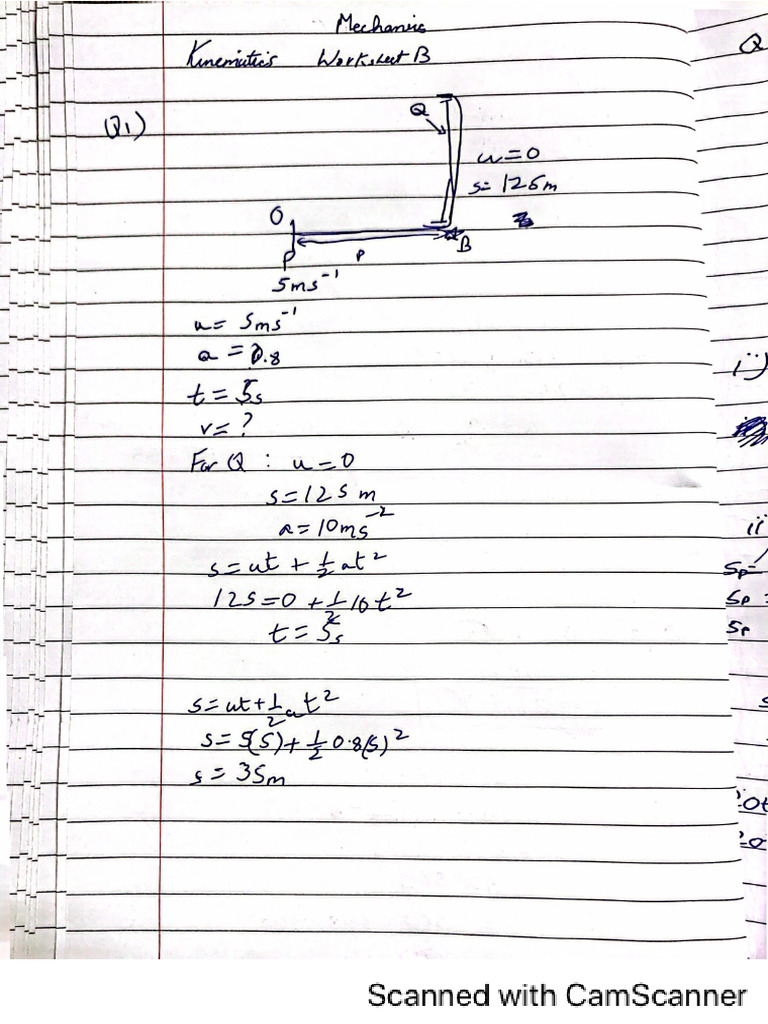 Mechanics
Kinematics Worksheet B
Q
Q1)
Q
u=0
s= 125m
O
B
P
P
5ms⁻¹
u= 5ms⁻¹
a = 0.8
t = 5s
v= ?
For Q : u=0
s=125 m
a=10ms⁻²
s=ut + 1/2 at²
125=0 + 1/2 10t²
t= 5s
s=ut+1/2 at²
s= 5(5)+ 1/2 0.8(5)²
s= 35m
i)
ii
Sp=
Sp =
Sp
Scanned with CamScanner